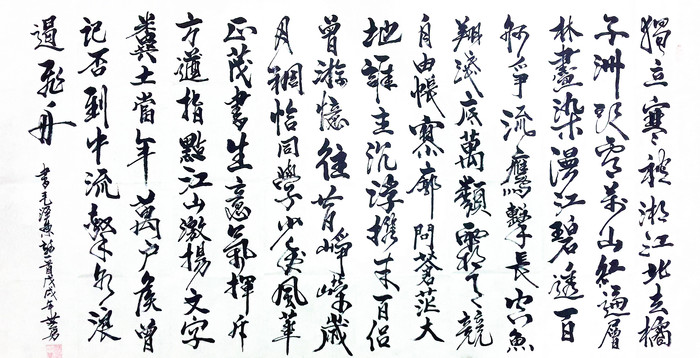 獨立寒秋湘江北去橘
子洲頭看萬山紅遍層
林盡染漫江碧透百
舸爭流鷹擊長空魚
翔淺底萬類霜天競
自由悵寥廓問蒼茫大
地誰主沉浮攜來百侶
曾游憶往昔崢嶸歲
月稠恰同學少年風華
正茂書生意氣揮斥
方遒指點江山激揚文字
糞土當年萬戶侯曾
記否到中流擊水浪
遏飛舟
書毛澤東詞一首戊戌年